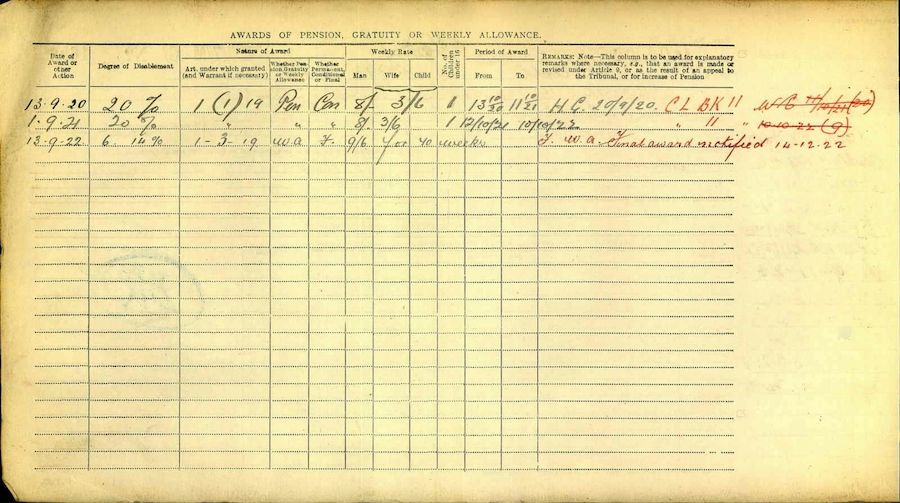 AWARDS OF PENSION, GRATUITY OR WEEKLY ALLOWANCE.
Date of Award or other Action
Degree of Disablement
Nature of Award
Art. under which granted (and Warrant if necessary)
Whether Pension, Gratuity or Weekly Allowance
Whether Permanent, Conditional or Final
Weekly Rate
Man
Wife
Child
No. of Children under 16
Period of Award
From
To
REMARKS: Note—This column is to be used for explanatory remarks where necessary, e.g., that an award is made or revised under Article 9, or as the result of an appeal to the Tribunal, or for increase of Pension
13-9-20 20 % 1 (1) 19 Pen Con 8/- 3/6 1 13 10/20 11 10/21 H.G. 20/9/20. CL BK 11
1-9-21 20 % " " " 8/- 3/6 1 12/10/21 10/10/22 " 11 " 10-10-22 (9)
13-9-22 6. 14% 1-3-19 w.a F. 9/6 for 40 weeks F. w.a. Final award notified 14-12-22